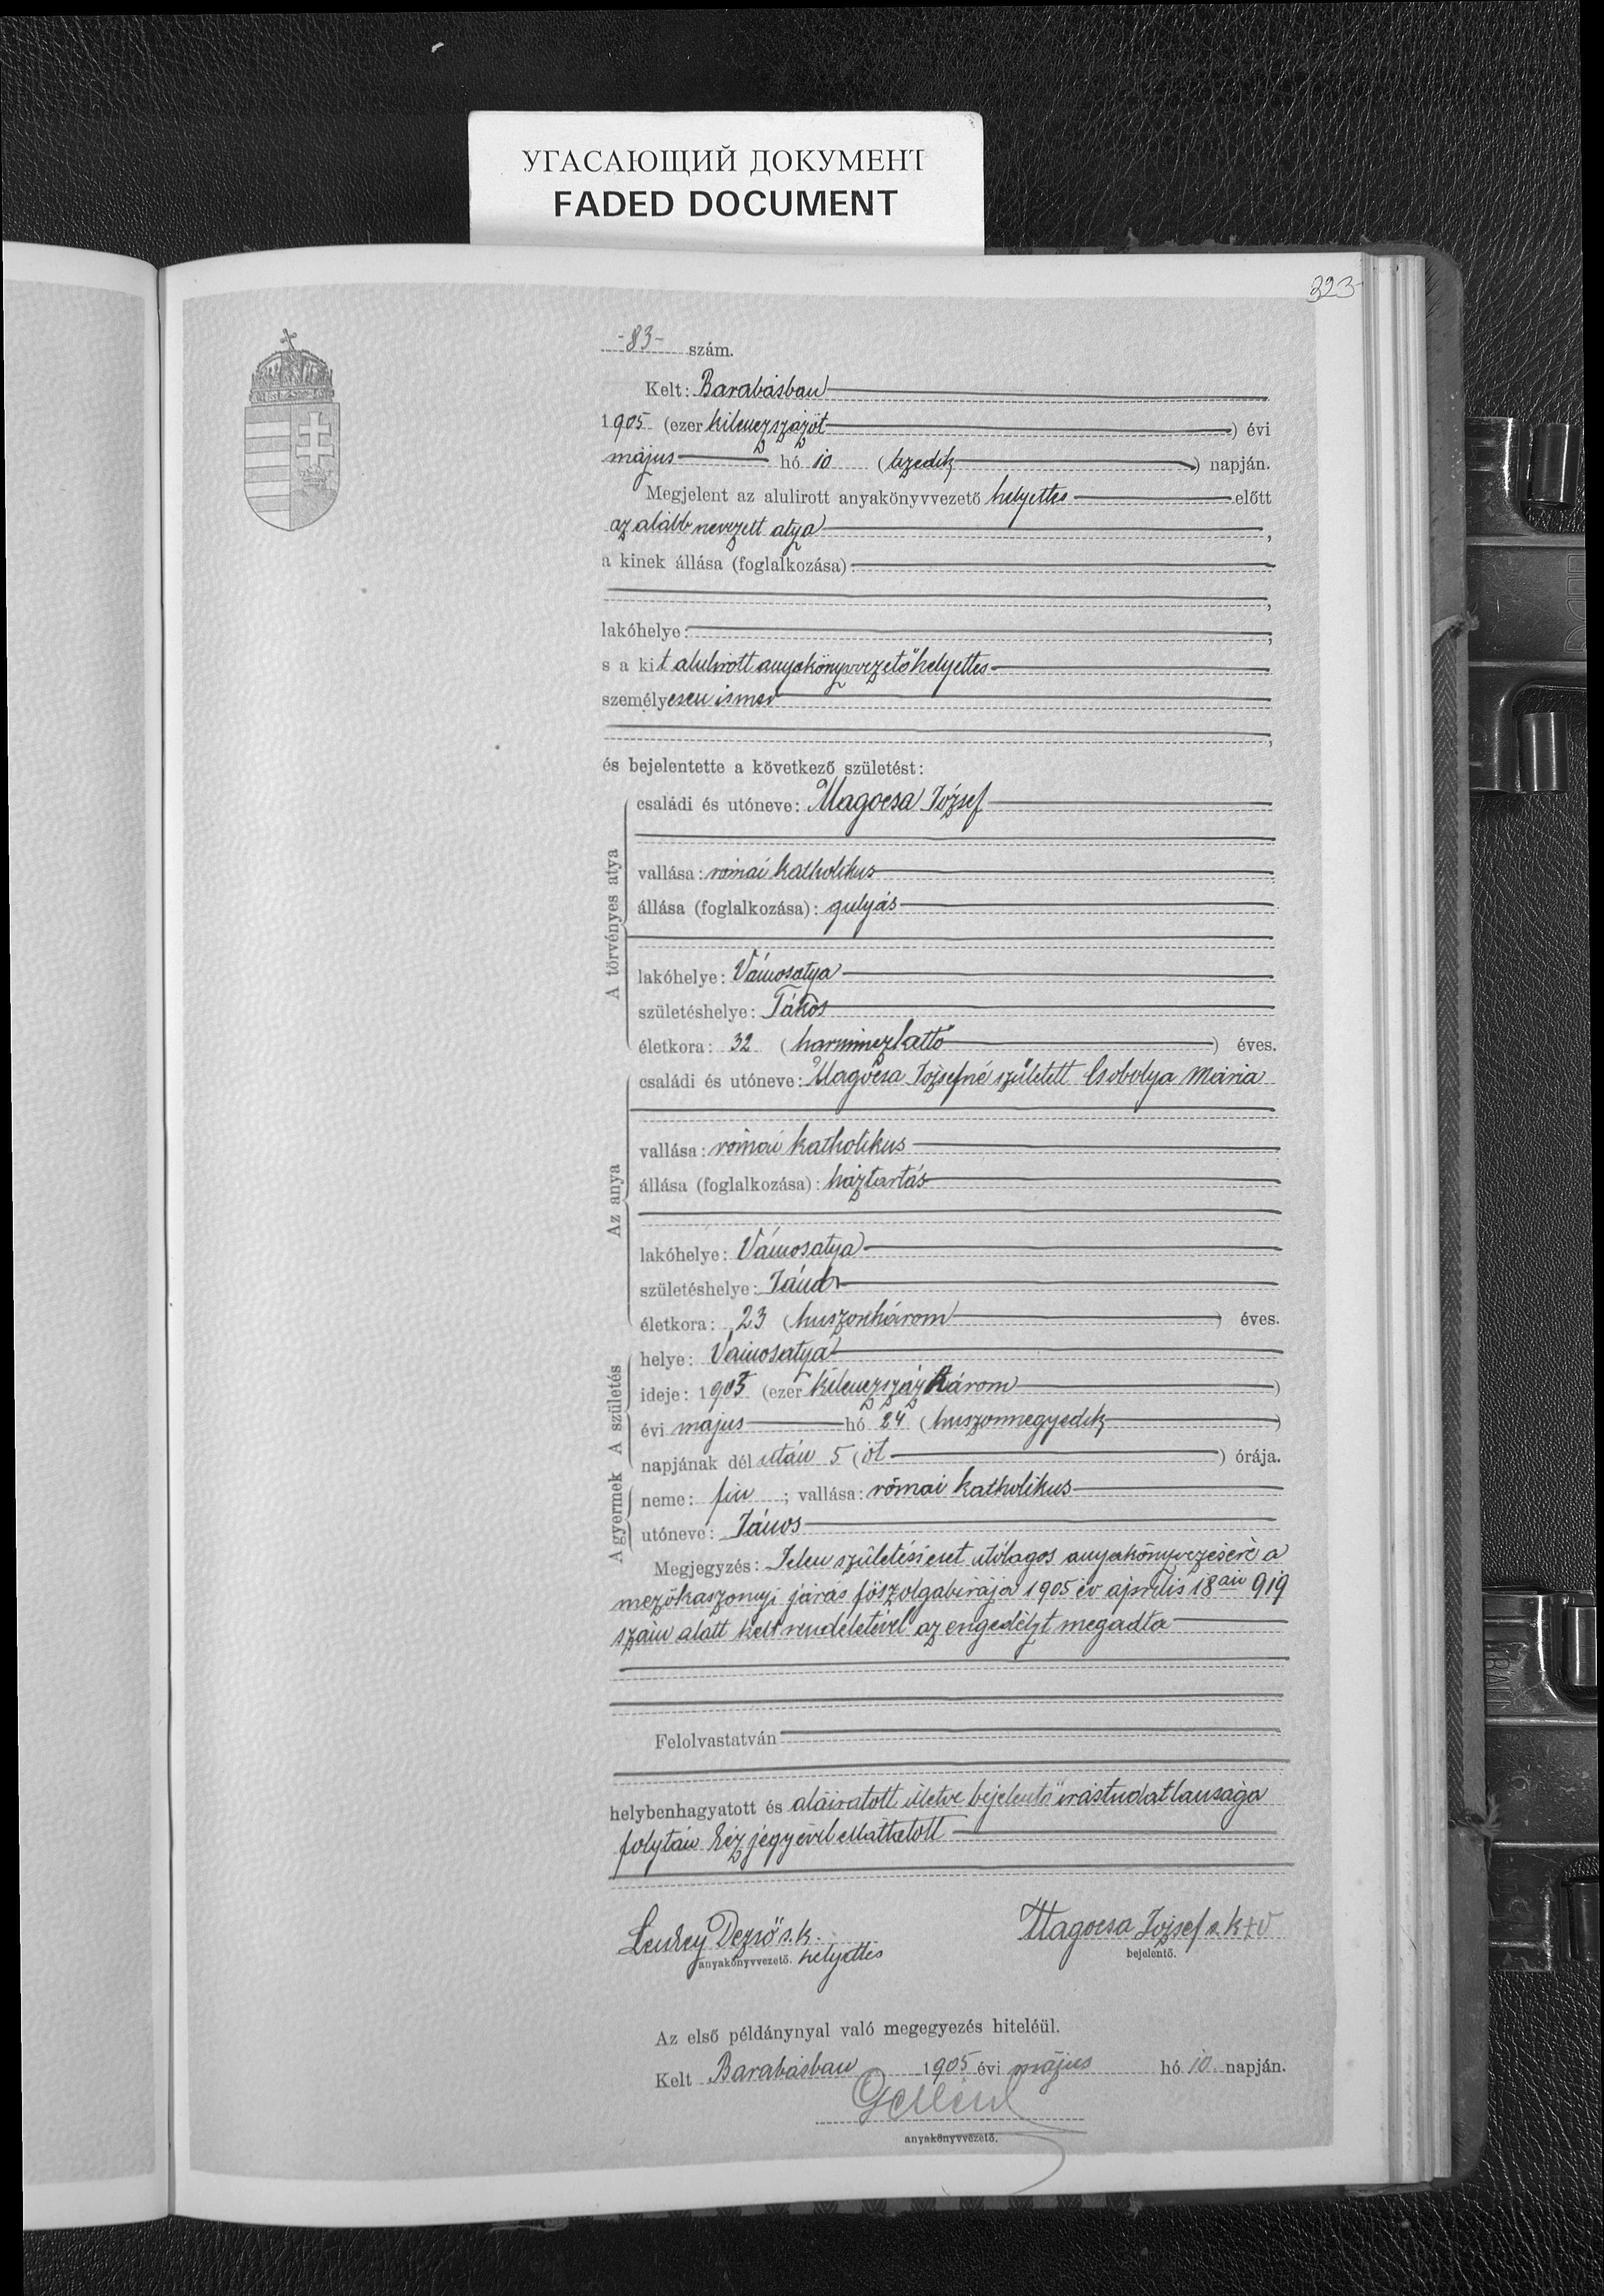 УГАСАЮЩИЙ ДОКУМЕНТ
FADED DOCUMENT
323
-83- szám.
Kelt: Barabásban
1905 (ezer kilenczszázöt) évi
május hó 10 (tizedik) napján.
Megjelent az alulirott anyakönyvvezető helyettes előtt
az alább nevezett atya,
a kinek állása (foglalkozása):
,
lakóhelye: ;
s a kit alulirott anyakönyvvezető helyettes
személyesen ismer
,
és bejelentette a következő születést:
A törvényes atya
családi és utóneve: Magocsa József
vallása: római katholikus
állása (foglalkozása): gulyás
lakóhelye: Vámosatya
születéshelye: Tákos
életkora: 32 (harminczkettő) éves.
Az anya
családi és utóneve: Magócsa Józsefné született Csobolya Mária
vallása: római katholikus
állása (foglalkozása): háztartás
lakóhelye: Vámosatya
születéshelye: Jánd
életkora: 23 (huszonhárom) éves.
A születés
helye: Vámosatya
ideje: 1903 (ezer kilenczszáz három)
évi május hó 24 (huszonnegyedik)
napjának dél után 5 (öt) órája.
A gyermek
neme: fiu; vallása: római katholikus
utóneve: János
Megjegyzés: Jelen születési eset utólagos anyakönyvezésére a
mezőkaszonyi járás főszolgabirája 1905 év április 18án 919
szám alatt kelt rendeletével az engedélyt megadta
Felolvastatván
helybenhagyatott és aláiratott illetve bejelentő irástudatlansága
folytán kézjegyével elláttatott
Dezső s.k. Magocsa József s. k + v
anyakönyvvezető. helyettes bejelentő.
Az első példánynyal való megegyezés hiteléül.
Kelt Barabásban 1905 évi május hó 10 napján.
anyakönyvvezető.